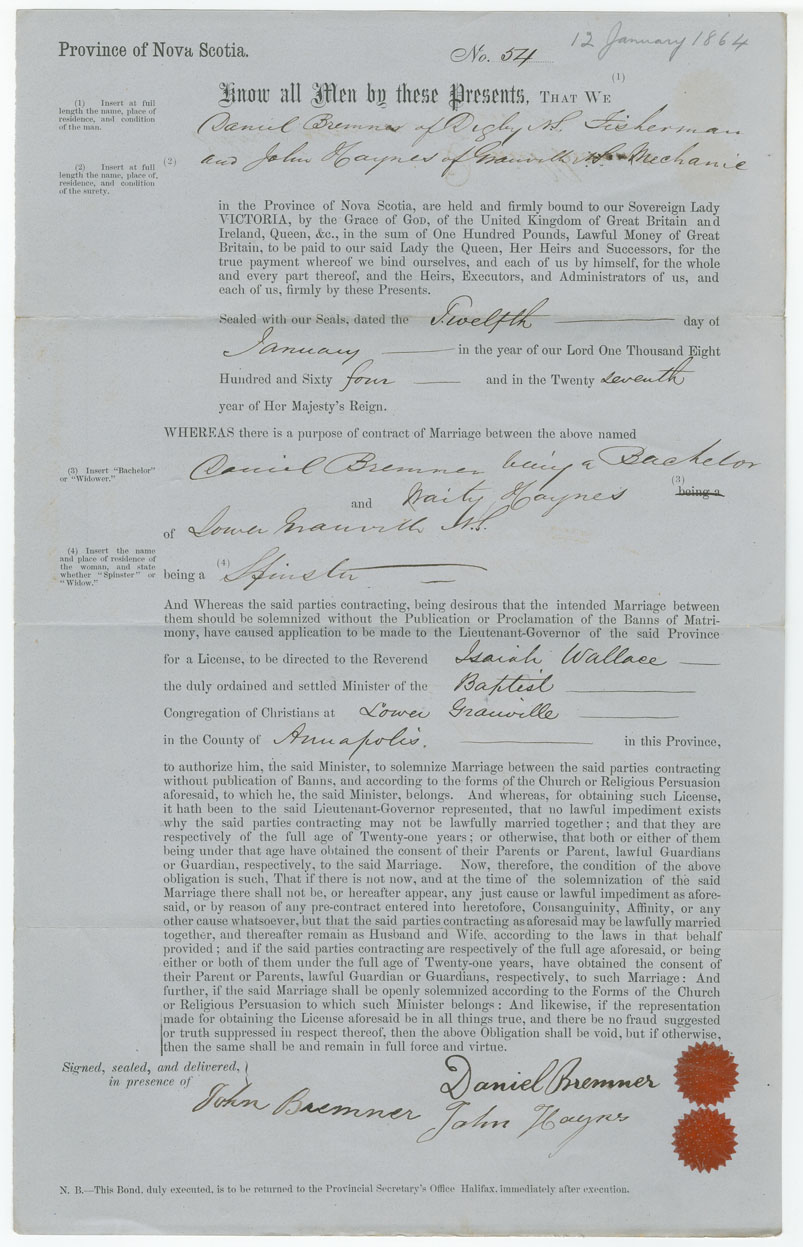 12 January 1864
Province of Nova Scotia.
No. 54
Know all Men by these Presents, THAT WE (1)
(1) Insert at full
length the name, place of
residence, and condition
of the man.
Daniel Bremner of Digby N.S. Fisherman
(2) Insert at full
length the name, place of,
residence, and condition
of the surety.
(2) and John Haynes of Granville N.S. Mechanic
in the Province of Nova Scotia, are held and firmly bound to our Sovereign Lady
VICTORIA, by the Grace of GOD, of the United Kingdom of Great Britain and
Ireland, Queen, &c., in the sum of One Hundred Pounds, Lawful Money of Great
Britain, to be paid to our said Lady the Queen, Her Heirs and Successors, for the
true payment whereof we bind ourselves, and each of us by himself, for the whole
and every part thereof, and the Heirs, Executors, and Administrators of us, and
each of us, firmly by these Presents.
Sealed with our Seals, dated the Twelfth day of
January in the year of our Lord One Thousand Eight
Hundred and Sixty four and in the Twenty seventh
year of Her Majesty's Reign.
WHEREAS there is a purpose of contract of Marriage between the above named
(3) Insert "Bachelor"
or "Widower."
Daniel Bremner being a Bachelor
(3)
being a
and Waity Haynes
of Lower Granville N.S.
(4) Insert the name
and place of residence of
the woman, and state
whether "Spinster" or
"Widow."
being a (4) Spinster
And Whereas the said parties contracting, being desirous that the intended Marriage between
them should be solemnized without the Publication or Proclamation of the Banns of Matri-
mony, have caused application to be made to the Lieutenant-Governor of the said Province
for a License, to be directed to the Reverend Isaiah Wallace
the duly ordained and settled Minister of the Baptist
Congregation of Christians at Lower Granville
in the County of Annapolis. in this Province,
to authorize him, the said Minister, to solemnize Marriage between the said parties contracting
without publication of Banns, and according to the forms of the Church or Religious Persuasion
aforesaid, to which he, the said Minister, belongs. And whereas, for obtaining such License,
it hath been to the said Lieutenant-Governor represented, that no lawful impediment exists
why the said parties contracting may not be lawfully married together; and that they are
respectively of the full age of Twenty-one years; or otherwise, that both or either of them
being under that age have obtained the consent of their Parents or Parent, lawful Guardians
or Guardian, respectively, to the said Marriage. Now, therefore, the condition of the above
obligation is such, That if there is not now, and at the time of the solemnization of the said
Marriage there shall not be, or hereafter appear, any just cause or lawful impediment as afore-
said, or by reason of any pre-contract entered into heretofore, Consanguinity, Affinity, or any
other cause whatsoever, but that the said parties contracting as aforesaid may be lawfully married
together, and thereafter remain as Husband and Wife, according to the laws in that behalf
provided; and if the said parties contracting are respectively of the full age aforesaid, or being
either or both of them under the full age of Twenty-one years, have obtained the consent of
their Parent or Parents, lawful Guardian or Guardians, respectively, to such Marriage: And
further, if the said Marriage shall be openly solemnized according to the Forms of the Church
or Religious Persuasion to which such Minister belongs: And likewise, if the representation
made for obtaining the License aforesaid be in all things true, and there be no fraud suggested
or truth suppressed in respect thereof, then the above Obligation shall be void, but if otherwise,
then the same shall be and remain in full force and virtue.
Signed, sealed, and delivered,
in presence of
John Bremner
Daniel Bremner
John Hayns
N. B.—This Bond, duly executed, is to be returned to the Provincial Secretary's Office Halifax, immediately after execution.